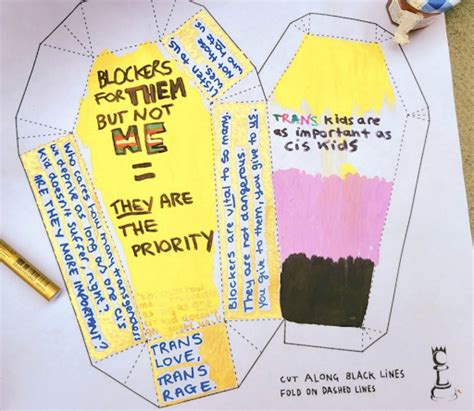 BLOCKERS
FOR THEM
BUT NOT
ME
=
THEY ARE
THE
PRIORITY
Listen to us
not those
who
Who cares how many transgenders
we demise as long as one cis
kid doesn't suffer, right?
ARE THEY MORE IMPORTANT?
Blockers are vital to so many.
They are not dangerous.
You give to them, you give to us.
TRANS
LOVE,
TRANS
RAGE.
TRANS kids are
as important as
cis kids
CUT ALONG BLACK LINES
FOLD ON DASHED LINES
CL